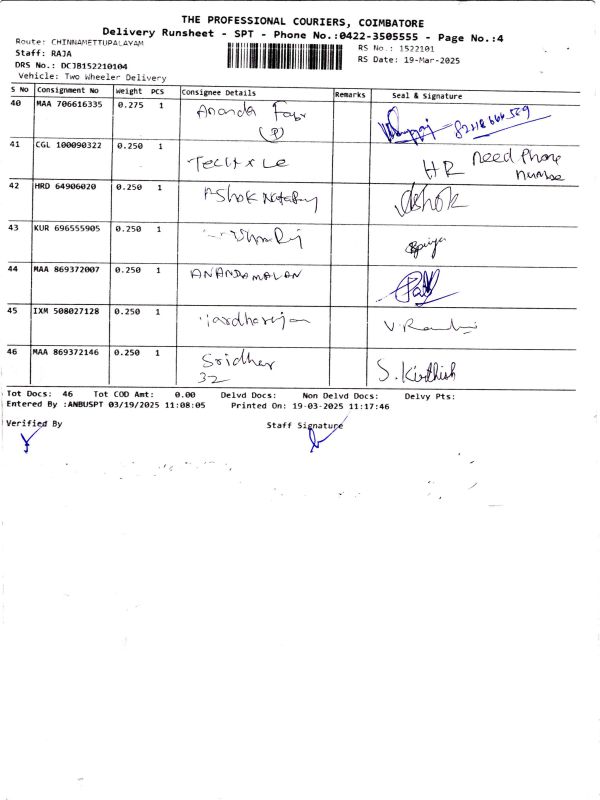 THE PROFESSIONAL COURIERS, COIMBATORE
Delivery Runsheet - SPT - Phone No.:0422-3505555 - Page No.:4
Route: CHINNAMETTUPALAYAM
RS No.: 1522101
Staff: RAJA
RS Date: 19-Mar-2025
DRS No.: DCJB152210104
Vehicle: Two Wheeler Delivery
S No Consignment No Weight PCS Consignee Details Remarks Seal & Signature
40 MAA 706616335 0.275 1 Ananda
41 CGL 100090322 0.250 1 HR need Phone
number
42 HRD 64906020 0.250 1 Ashok Notary Ashok
43 KUR 696555905 0.250 1
44 MAA 869372007 0.250 1
45 IXM 508027128 0.250 1
46 MAA 869372146 0.250 1 Sridhar S. Kirthish
32
Tot Docs: 46 Tot COD Amt: 0.00 Delvd Docs: Non Delvd Docs: Delvy Pts:
Entered By :ANBUSPT 03/19/2025 11:08:05 Printed On: 19-03-2025 11:17:46
Verified By Staff Signature